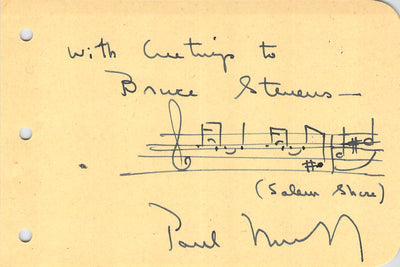 With Greetings to
Bruce Stevens —
(Salem Shore)
Paul Nordoff